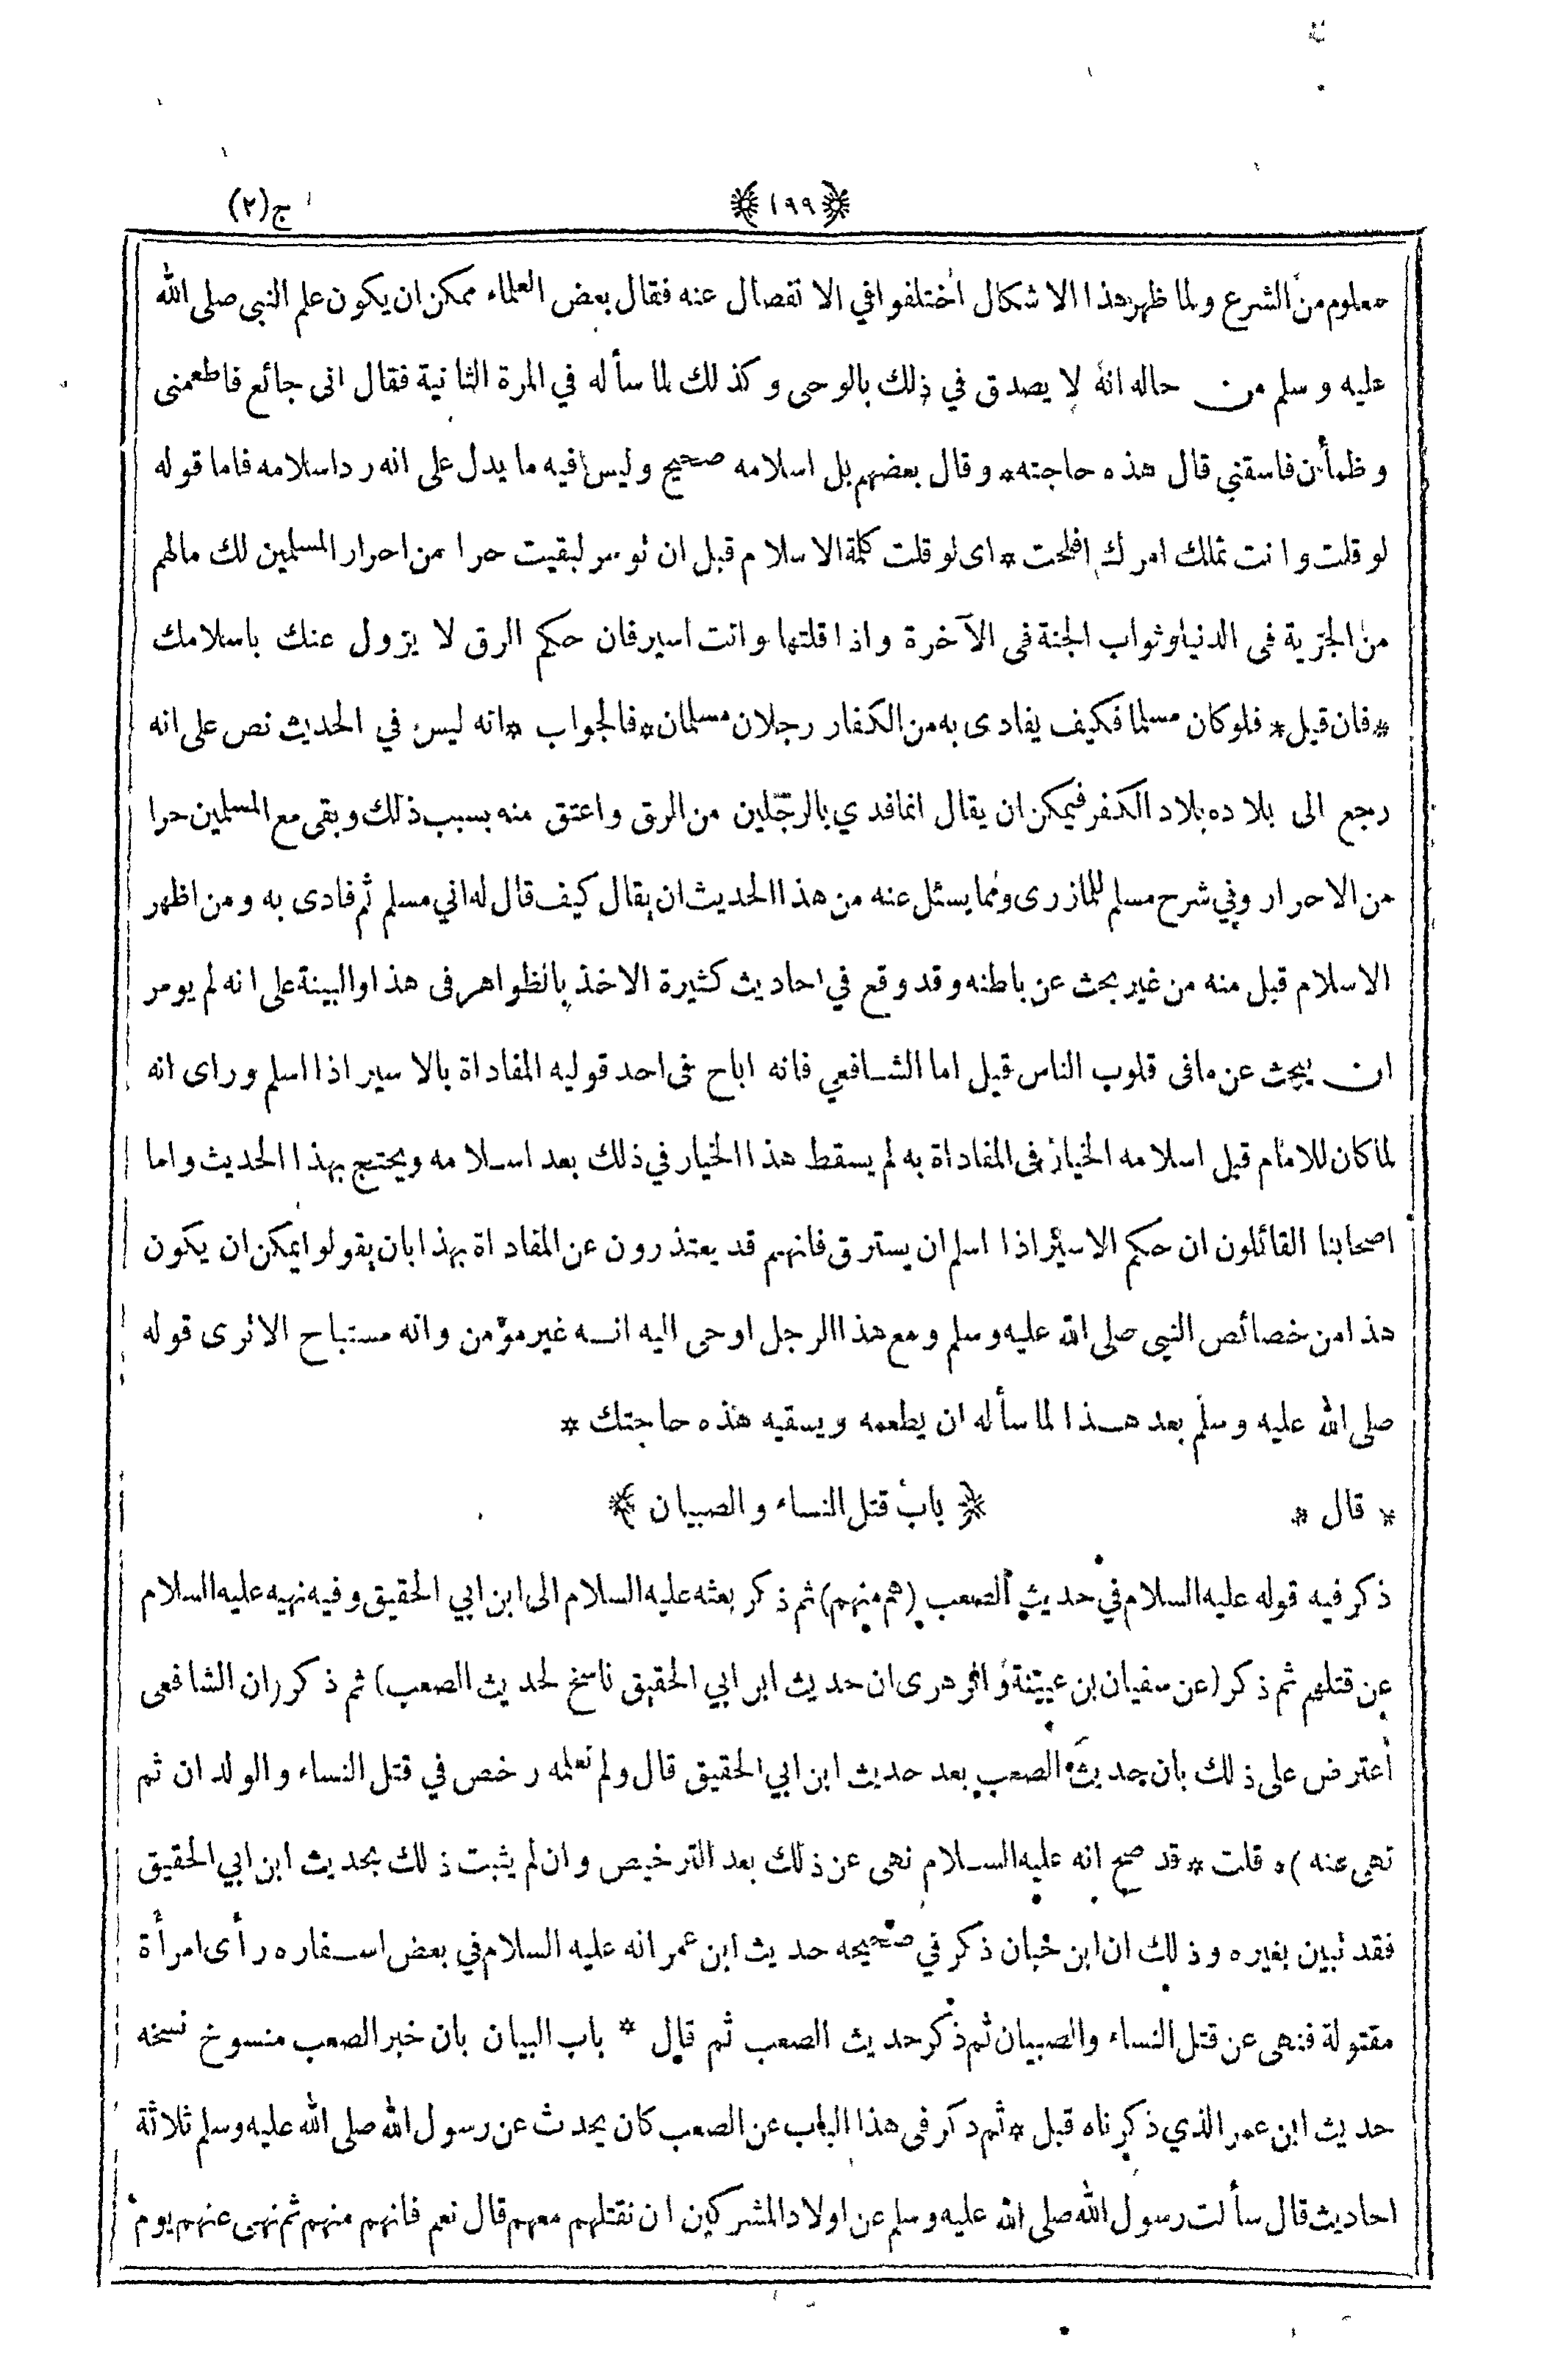 ﴿١٩٩﴾ ج(٢)
معلوم من الشرع ولما ظهر هذا الاشكال اختلفوا في الانفصال عنه فقال بعض العلماء ممكن ان يكون علم النبى صلى الله
عليه وسلم من حاله انه لا يصدق في ذلك بالوحى وكذلك لما سأله في المرة الثانية فقال انى جائع فاطعمنى
وظمأن فاسقني قال هذه حاجته* وقال بعضهم بل اسلامه صحيح وليس فيه ما يدل على انه رد اسلامه فاما قوله
لو قلت وانت تملك امرك افلحت* اى لو قلت كلمة الاسلام قبل ان توسر لبقيت حرا من احرار المسلمين لك مالهم
من الجزية فى الدنيا وثواب الجنة فى الآخرة واذا قلتها وانت اسير فان حكم الرق لا يزول عنك باسلامك
*فان قيل* فلو كان مسلما فكيف يفادى به من الكفار رجلان مسلمان* فالجواب *انه ليس في الحديث نص على انه
رجع الى بلاده بلاد الكفر فيمكن ان يقال انما فدي بالرجلين من الرق واعتق منه بسبب ذلك وبقى مع المسلمين حرا
من الاحرار وفي شرح مسلم للمازرى ومما يسئل عنه من هذا الحديث ان يقال كيف قال له اني مسلم ثم فادى به ومن اظهر
الاسلام قبل منه من غير بحث عن باطنه وقد وقع في احاديث كثيرة الاخذ بالظواهر فى هذا والبينة على انه لم يومر
ان يبحث عن مافى قلوب الناس قيل اما الشافعي فانه اباح فى احد قوليه المفاداة بالاسير اذا اسلم ورأى انه
لما كان للامام قبل اسلامه الخيار فى المفاداة به لم يسقط هذا الخيار في ذلك بعد اسلامه ويحتج بهذا الحديث واما
اصحابنا القائلون ان حكم الاسير اذا اسلم ان يسترق فانهم قد يعتذرون عن المفاداة بهذا بان يقولوا يمكن ان يكون
هذا من خصائص النبي صلى الله عليه وسلم ومع هذا الرجل اوحى اليه انه غير مؤمن وانه مستباح الا ترى قوله
صلى الله عليه وسلم بعد هذا لما سأله ان يطعمه ويسقيه هذه حاجتك *
* قال * ﴿ باب قتل النساء والصبيان ﴾
ذكر فيه قوله عليه السلام في حديث الصعب (هم منهم) ثم ذكر بعثه عليه السلام الى ابن ابي الحقيق وفيه نهيه عليه السلام
عن قتلهم ثم ذكر (عن سفيان بن عيينة والزهرى ان حديث ابن ابي الحقيق ناسخ لحديث الصعب) ثم ذكر (ان الشافعى
اعترض على ذلك بان حديث الصعب بعد حديث ابن ابي الحقيق قال ولم نعلمه رخص في قتل النساء والولدان ثم
نهى عنه)* قلت* قد صح انه عليه السلام نهى عن ذلك بعد الترخيص وان لم يثبت ذلك بحديث ابن ابي الحقيق
فقد تبين بغيره وذلك ان ابن حبان ذكر في صحيحه حديث ابن عمر انه عليه السلام في بعض اسفاره رأى امرأة
مقتولة فنهى عن قتل النساء والصبيان ثم ذكر حديث الصعب ثم قال * باب البيان بان خبر الصعب منسوخ نسخه
حديث ابن عمر الذي ذكرناه قبل* ثم ذكر فى هذا الباب عن الصعب كان يحدث عن رسول الله صلى الله عليه وسلم ثلاثة
احاديث قال سألت رسول الله صلى الله عليه وسلم عن اولاد المشركين ان نقتلهم معهم قال نعم فانهم منهم ثم نهى عنهم يوم